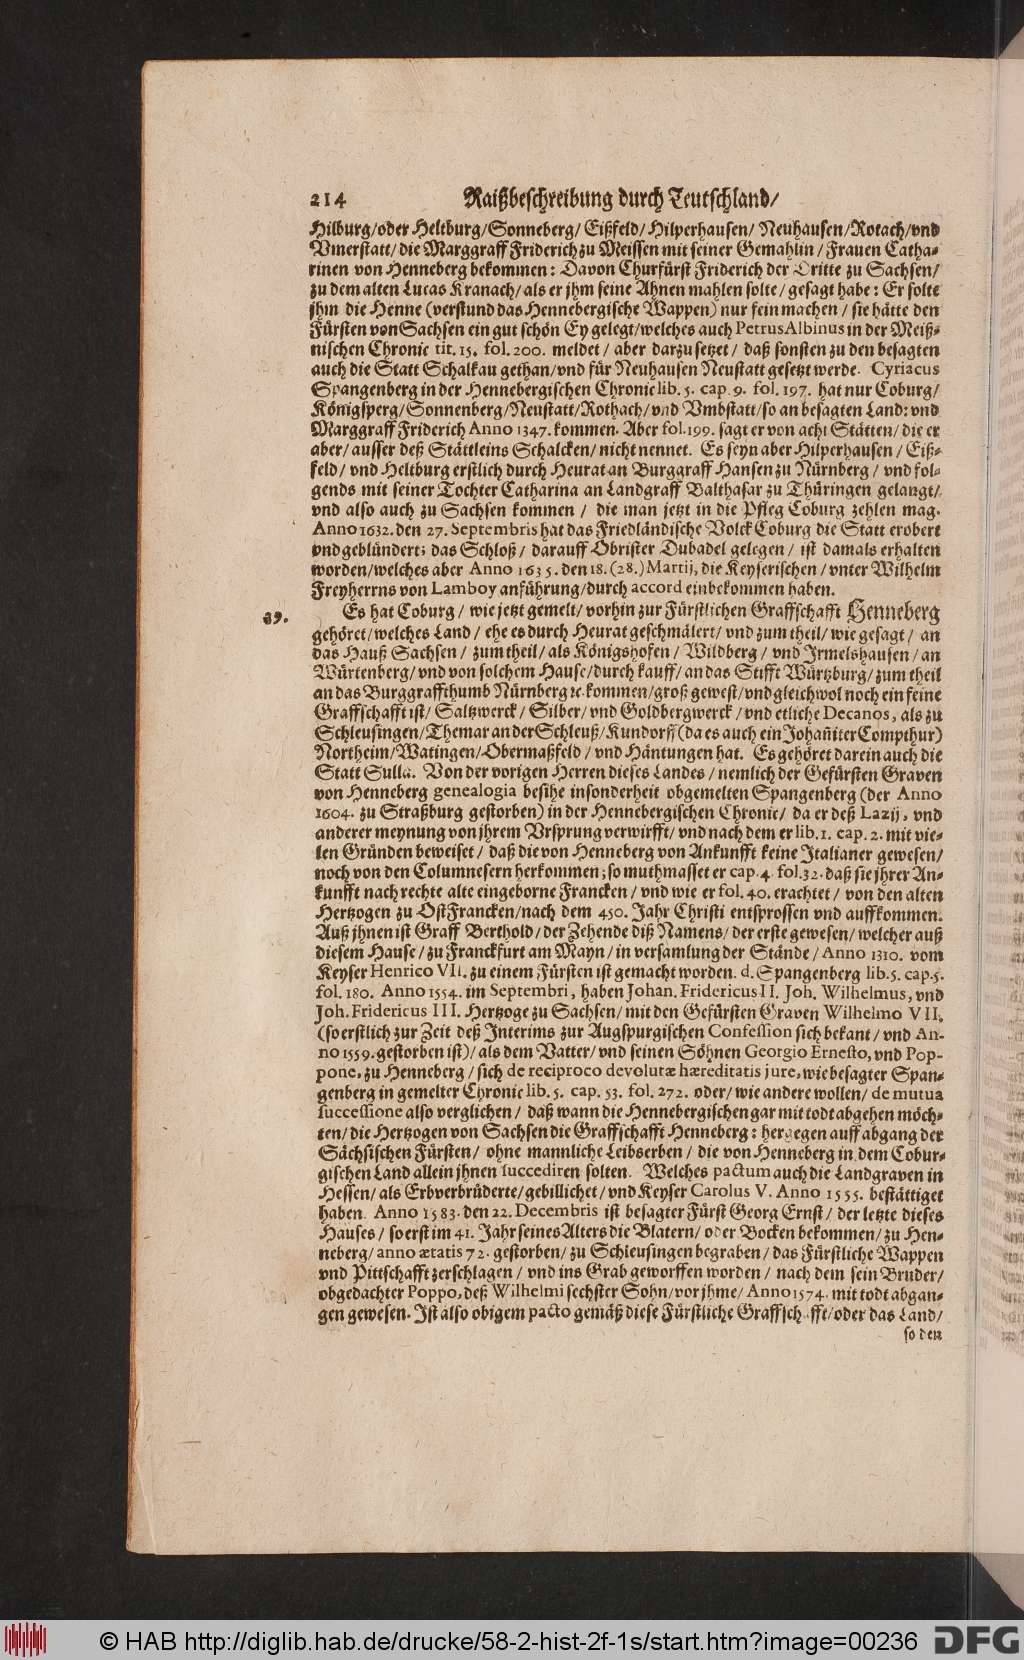 214 Raißbeschreibung durch Teutschland/
Hilburg/oder Heltburg/Sonneberg/Eißfeld/Hilperhausen/Neuhausen/Rotach/vnd
Vmerstatt/die Marggraff Friderich zu Meissen mit seiner Gemahlin/Frauen Catha-
rinen von Henneberg bekommen: Davon Churfürst Friderich der Dritte zu Sachsen/
zu dem alten Lucas Kranach/als er jhm seine Ahnen mahlen solte/gesagt habe: Er solte
jhm die Henne (verstund das Hennebergische Wappen) nur fein machen/sie hätte den
Fürsten von Sachsen ein gut schön Ey gelegt/welches auch Petrus Albinus in der Meiß-
nischen Chronic tit. 15. fol. 200. meldet/aber darzu setzet/daß sonsten zu den besagten
auch die Statt Schalkau gethan/vnd für Neuhausen Neustatt gesetzt werde. Cyriacus
Spangenberg in der Hennebergischen Chronic lib. 5. cap. 9. fol. 197. hat nur Coburg/
Königsperg/Sonnenberg/Neustatt/Rothach/vnd Vmbstatt/so an besagten Land: vnd
Marggraff Friderich Anno 1347. kommen. Aber fol. 199. sagt er von acht Stätten/die er
aber/ausser deß Stättleins Schalcken/nicht nennet. Es seyn aber Hilperhausen/Eiß-
feld/vnd Heltburg erstlich durch Heurat an Burggraff Hansen zu Nürnberg/vnd fol-
gends mit seiner Tochter Catharina an Landgraff Balthasar zu Thüringen gelangt/
vnd also auch zu Sachsen kommen/die man jetzt in die Pfleg Coburg zehlen mag.
Anno 1632. den 27. Septembris hat das Friedländische Volck Coburg die Statt erobert
vnd geblündert; das Schloß/darauff Obrister Dubadel gelegen/ist damals erhalten
worden/welches aber Anno 1635. den 18. (28.) Martij, die Keyserischen/vnter Wilhelm
Freyherrns von Lamboy anführung/durch accord einbekommen haben.
39. Es hat Coburg/wie jetzt gemelt/vorhin zur Fürstlichen Graffschafft Henneberg
gehöret/welches Land/ehe es durch Heurat geschmälert/vnd zum theil/wie gesagt/an
das Hauß Sachsen/zum theil/als Königshofen/Wildberg/vnd Irmelshausen/an
Würtenberg/vnd von solchem Hause/durch kauff/an das Stifft Würtzburg/zum theil
an das Burggraffthumb Nürnberg ꝛc. kommen/groß gewest/vnd gleichwol noch ein feine
Graffschafft ist/Saltzwerck/Silber/vnd Goldbergwerck/vnd etliche Decanos, als zu
Schleusingen/Themar an der Schleuß/Kundorff (da es auch ein Johañiter Compthur)
Northeim/Watingen/Obermaßfeld/vnd Häntungen hat. Es gehöret darein auch die
Statt Sulla. Von der vorigen Herren dieses Landes/nemlich der Gefürsten Graven
von Henneberg genealogia besihe insonderheit obgemelten Spangenberg (der Anno
1604. zu Straßburg gestorben) in der Hennebergischen Chronic/da er deß Lazij, vnd
anderer meynung von jhrem Vrsprung verwirfft/vnd nach dem er lib. 1. cap. 2. mit vie-
len Gründen beweiset/daß die von Henneberg von Ankunfft keine Italianer gewesen/
noch von den Columnesern herkommen; so muthmasset er cap. 4. fol. 32. daß sie jhrer An-
kunfft nach rechte alte eingeborne Francken/vnd wie er fol. 40. erachtet/von den alten
Hertzogen zu OstFrancken/nach dem 450. Jahr Christi entsprossen vnd auffkommen.
Auß jhnen ist Graff Berthold/der Zehende diß Namens/der erste gewesen/welcher auß
diesem Hause/zu Franckfurt am Mayn/in versamlung der Stände/Anno 1310. vom
Keyser Henrico VII. zu einem Fürsten ist gemacht worden. d. Spangenberg lib. 5. cap. 5.
fol. 180. Anno 1554. im Septembri, haben Johan. Fridericus II. Joh. Wilhelmus, vnd
Joh. Fridericus III. Hertzoge zu Sachsen/mit den Gefürsten Graven Wilhelmo VII.
(so erstlich zur Zeit deß Interims zur Augspurgischen Confession sich bekant/vnd An-
no 1559. gestorben ist)/als dem Vatter/vnd seinen Söhnen Georgio Ernesto, vnd Pop-
pone, zu Henneberg/sich de reciproco devolutæ hæreditatis jure, wie besagter Span-
genberg in gemelter Chronic lib. 5. cap. 53. fol. 272. oder/wie andere wollen/de mutua
successione also verglichen/daß wann die Hennebergischen gar mit todt abgehen möch-
ten/die Hertzogen von Sachsen die Graffschafft Henneberg: hergegen auff abgang der
Sächsischen Fürsten/ohne mannliche Leibserben/die von Henneberg in dem Cobur-
gischen Land allein jhnen succediren solten. Welches pactum auch die Landgraven in
Hessen/als Erbverbrüderte/gebillichet/vnd Keyser Carolus V. Anno 1555. bestättiget
haben. Anno 1583. den 22. Decembris ist besagter Fürst Georg Ernst/der letzte dieses
Hauses/so erst im 41. Jahr seines Alters die Blatern/oder Bocken bekommen/zu Hen-
neberg/anno ætatis 72. gestorben/zu Schleusingen begraben/das Fürstliche Wappen
vnd Pittschafft zerschlagen/vnd ins Grab geworffen worden/nach dem sein Bruder/
obgedachter Poppo, deß Wilhelmi sechster Sohn/vor jhme/Anno 1574. mit todt abgan-
gen gewesen. Ist also obigem pacto gemäß diese Fürstliche Graffschafft/oder das Land/
so den
© HAB http://diglib.hab.de/drucke/58-2-hist-2f-1s/start.htm?image=00236 DFG